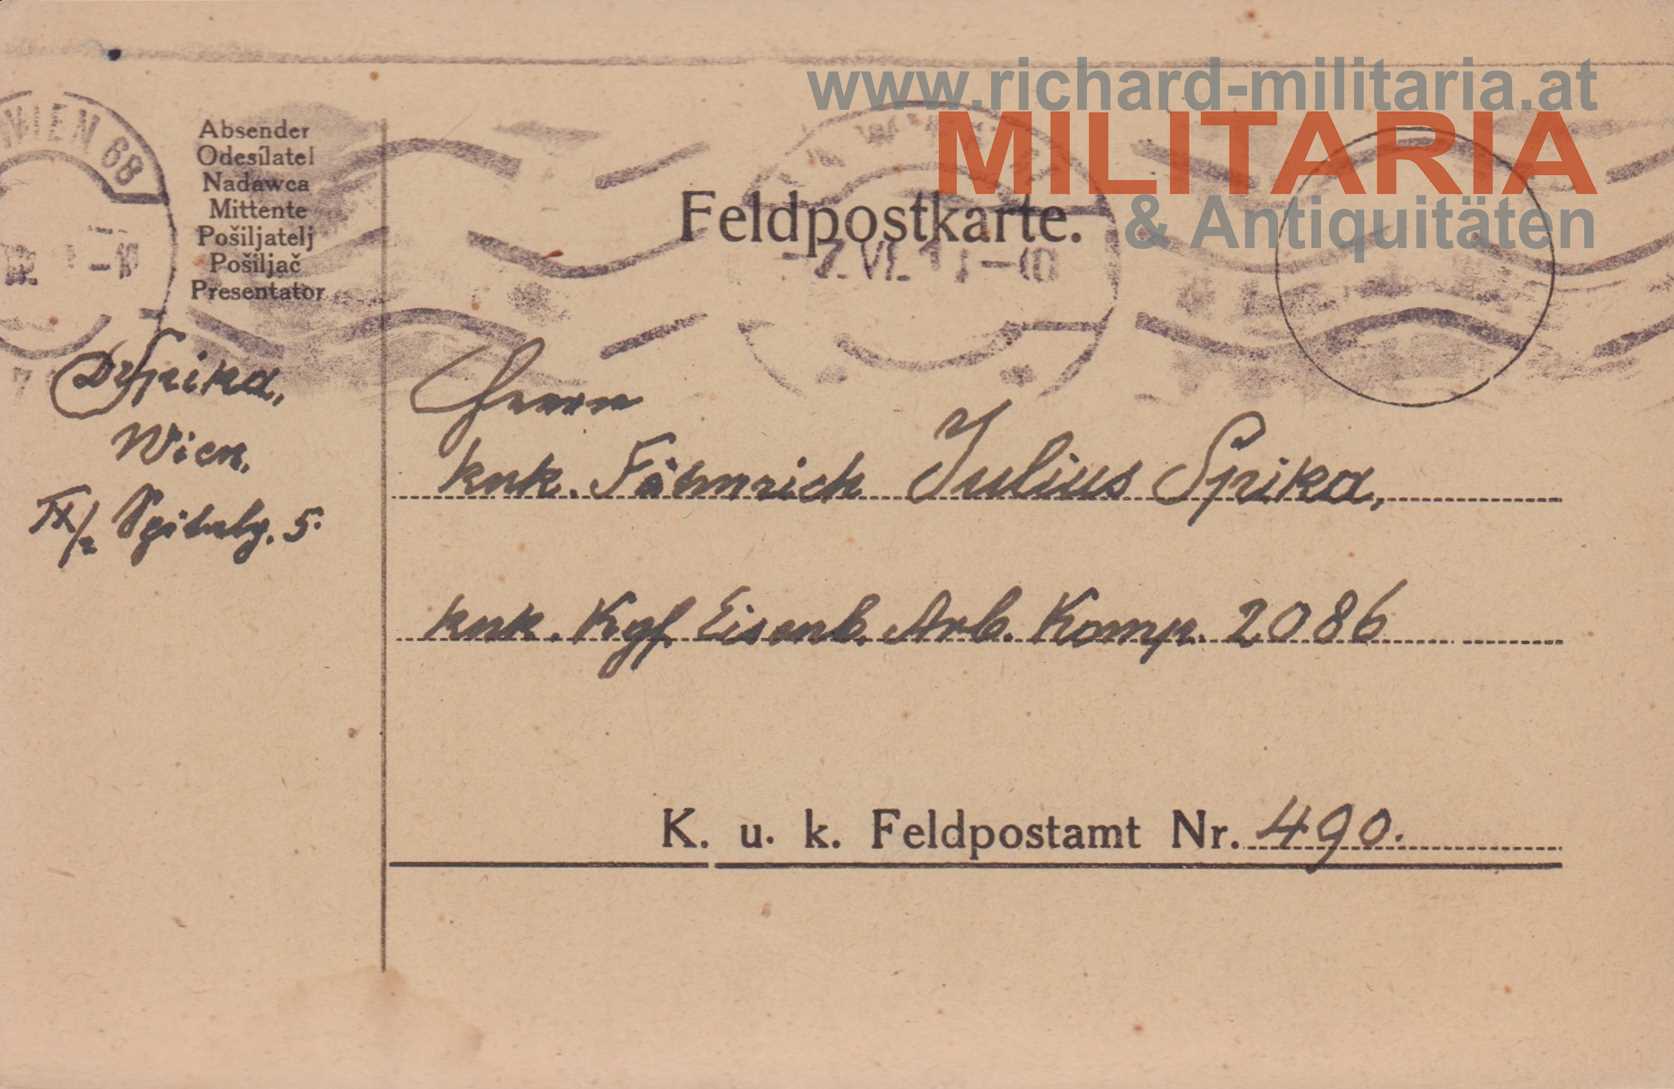 www.richard-militaria.at
MILITARIA
& Antiquitäten
WIEN 68
Absender
Odesílatel
Nadawca
Mittente
Pošiljatelj
Pošiljač
Presentator
Feldpostkarte.
Dr Spika,
Wien.
IX/2 Spitalg. 5.
Herrn
kuk. Fähnrich Julius Spika,
kuk. Kgf. Eisenb. Arb. Komp. 2086
K. u. k. Feldpostamt Nr. 490.